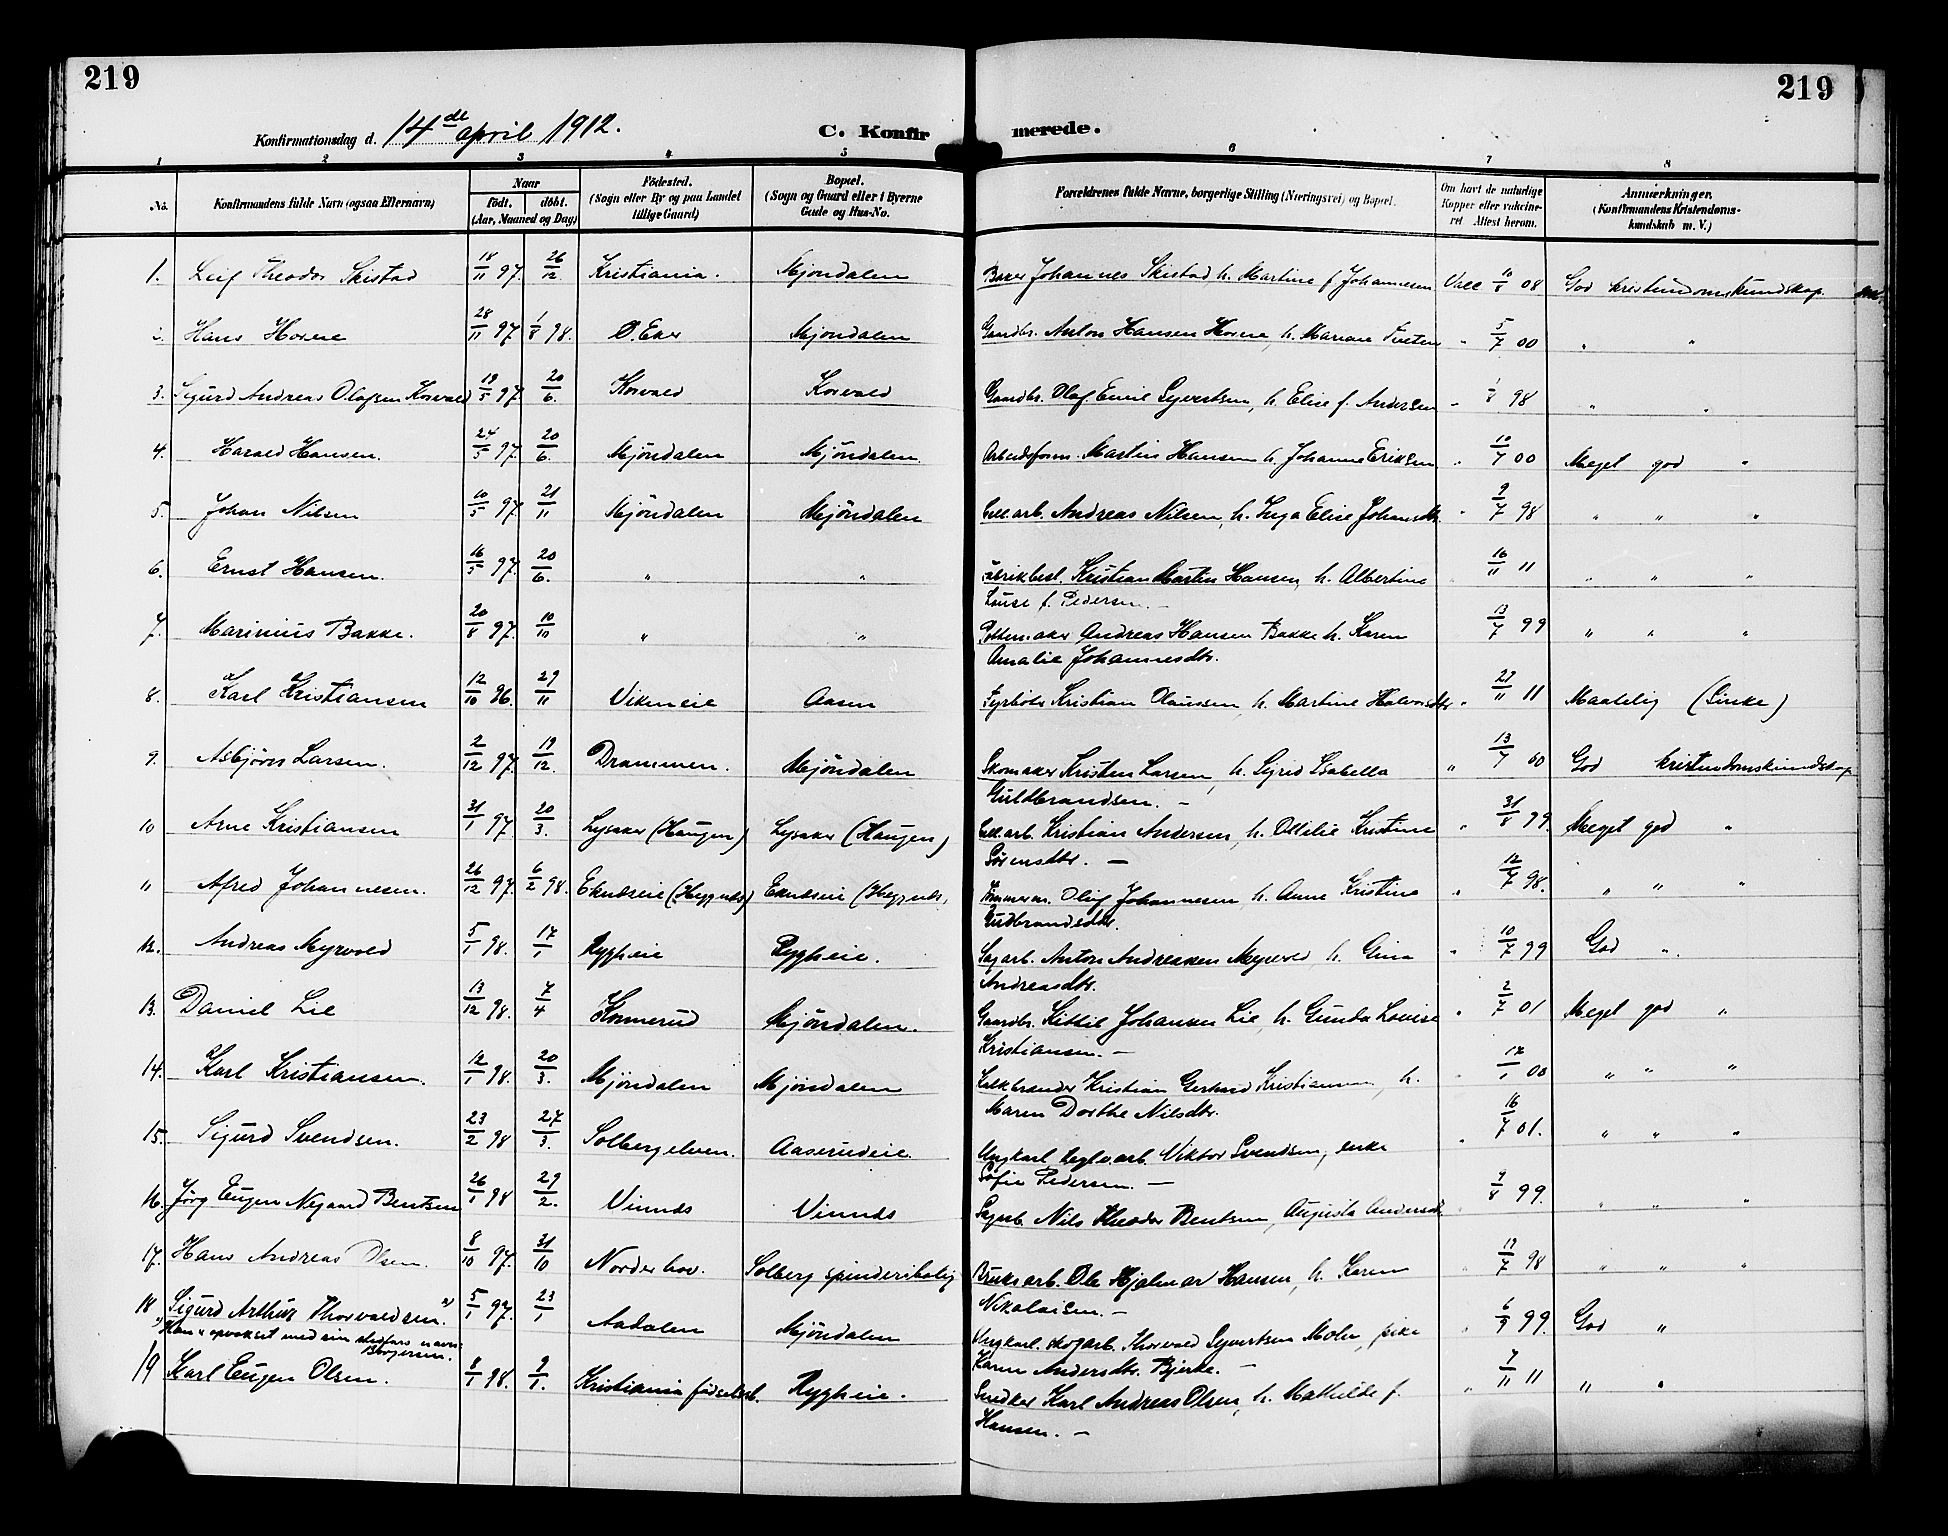 219
219
Konfirmationsdag d. 14de april 1912.
C. Konfirmerede.
1 2 3 4 5 6 7 8
No. Konfirmandens fulde Navn (ogsaa Efternavn) Naar födt. döbt. (Aar, Maaned og Dag) Födested. (Sogn eller By og paa Landet tillige Gaard) Bopæl. (Sogn og Gaard eller i Byerne Gade og Hus-No. Forældrenes fulde Navne, borgerlige Stilling (Næringsvei) og Bopæl. Om havt de naturlige Kopper eller vakcineret Attest herom. Anmærkninger. (Konfirmandens Kristendomskundskab m. V.)
1. Leif Theodor Skistad 18/11 97. 26/12 Kristiania. Mjöndalen Baker Johannes Skistad, h. Martine f Johannesen Vacc 10/8 08 God kristendomskundskap
2. Hans Horne 28/11 97 1/8 98. Ö. Eker Mjöndalen Gaardbr. Anton Hansen Horne, h. Mariane Tveten " 5/7 00 " "
3. Sigurd Andreas Olafsen Korvald 19/5 97 20/6. Korvald Korvald Gaardbr. Olaf Emil Syvertsen, h. Elise f. Andersen " 1/8 98 " "
4. Harald Hansen. 24/5 97 20/6. Mjöndalen Mjöndalen. Arbeidsform. Martin Hansen h. Johanne Eriksen " 10/7 00 Meget god "
5. Johan Nilsen 10/5 97 21/11 Mjöndalen Mjöndalen Cell.arb. Andreas Nilsen, h. Inga Elise Johansdtr. " 9/7 98 " " "
6. Ernst Hansen. 16/5 97. 20/6. " " Fabrikbest. Kristian Martin Hansen, h. Albertine 16/11 11 " " "
Louise f. Pedersen. —
7. Marinius Bakke. 20/8 97. 10/10 " " Pottemaker Andreas Hansen Bakke h. Karen 13/7 99 " " "
Amalie Johannesdtr.
8. Karl Kristiansen 12/10 96. 29/11 Vikeneie Aasen Fyrböter Kristian Claussen, h. Martine Halvorsdtr " 27/11 11 Maatelig (Sinke)
9. Asbjörn Larsen. 2/12 97. 19/12. Drammen. Mjöndalen Skomaker Kristen Larsen, h. Sigrid Isabella " 13/7 00 God kristendomskundskap
Guldbrandsen. —
10 Arne Kristiansen 31/1 97 20/3. Lysaker (Haugen) Lysaker (Haugen) Cell.arb. Kristian Andersen, h. Ottilie Kristine " 31/8 99. Meget god "
Sörensdtr. —
11 Alfred Johannesen. 26/12 97. 6/2 98. Eknæseie Eknæseie Tömmerm. Oluf Johannesen, h. Anne Kristine " 12/7 98. " " "
Gudbrandsdtr.
12. Andreas Myrvold 5/1 98. 17/1 Rygheie Rygheie. Sagarb. Anton Andreassen Myrvold h. Gina " 10/7 99 God "
Andreasdtr.
13. Daniel Lie 13/12 98. 7/4 Konnerud Mjöndalen. Gaardbr. Kittil Johansen Lie, h. Gunda Lovise " 2/7 01 Meget god "
Kristiansen. —
14. Karl Kristiansen. 12/1 98. 20/3. Mjöndalen Mjöndalen Kalkbrænder Kristian Gerhard Kristiansen, h. 17/1 00 " " "
Maren Dorthe Nilsdtr.
15. Sigurd Svendsen. 23/2 98 27/3. Solbergelven. Aaserudeie. Ungkarl teglv.arb. Viktor Svendsen, enke " 16/7 01. " " "
Sofie Pedersen. —
16. Jörg Eugen Nygaard Bentsen 26/1 98 29/2. Vinnds Vinnds Sagarb. Nils Theodor Bentsen, Augusta Andersdt. 7/8 99. " " "
17. Hans Andreas Olsen. 8/10 97. 31/10 Norderhov. Solberg spinderibolig Bruksarb. Ole Hjalmar Hansen, h. Karen 19/7 98 " " "
Nikolaisen. —
18 Sigurd Arthur Thorvaldsen.*) 5/1 97. 23/1 Aadalen Mjöndalen Ungkarl. skogarb. Thorvald Syvertsen Moen, pike " 6/9 99. God "
*) Han er opvokset med sin stedfars navn: Borgersen. Karen Andersdtr. Bjerke. —
19 Karl Eugen Olsen. 8/1 98. 9/1. Kristiania födselsst. Rygheie. Snedker Karl Andreas Olsen, h. Mathilde f. " 7/11 11 " "
Hansen. —